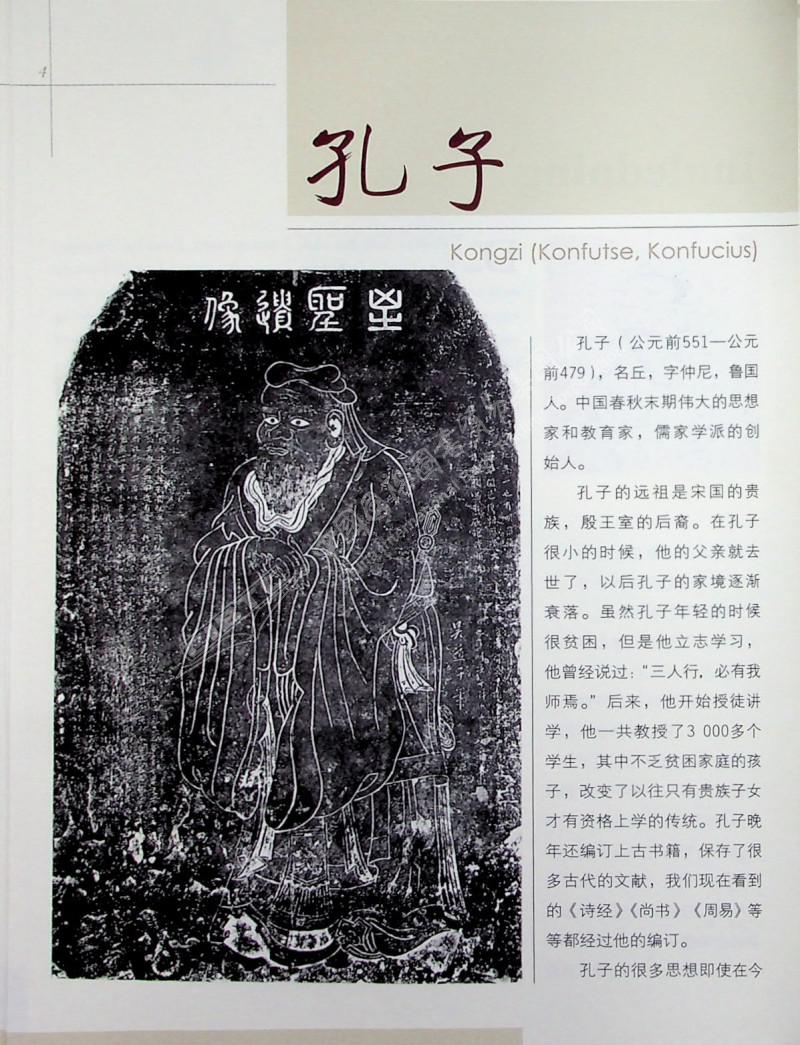 4
孔子
Kongzi (Konfutse, Konfucius)
像遗圣至
孔子（公元前551—公元
前479），名丘，字仲尼，鲁国
人。中国春秋末期伟大的思想
家和教育家，儒家学派的创
始人。
孔子的远祖是宋国的贵
族，殷王室的后裔。在孔子
很小的时候，他的父亲就去
世了，以后孔子的家境逐渐
衰落。虽然孔子年轻的时候
很贫困，但是他立志学习，
他曾经说过：“三人行，必有我
师焉。”后来，他开始授徒讲
学，他一共教授了3 000多个
学生，其中不乏贫困家庭的孩
子，改变了以往只有贵族子女
才有资格上学的传统。孔子晚
年还编订上古书籍，保存了很
多古代的文献，我们现在看到
的《诗经》《尚书》《周易》等
等都经过他的编订。
孔子的很多思想即使在今